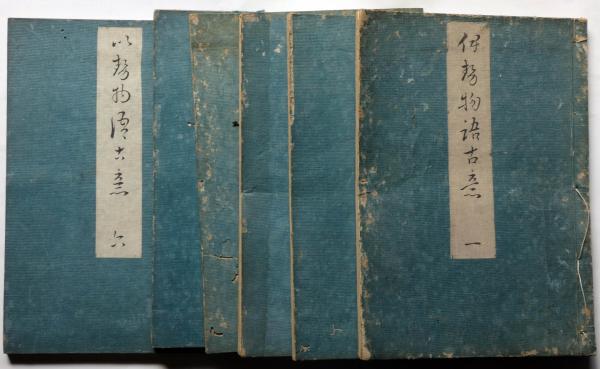 伊勢物語古意 一
以勢物語古意 六